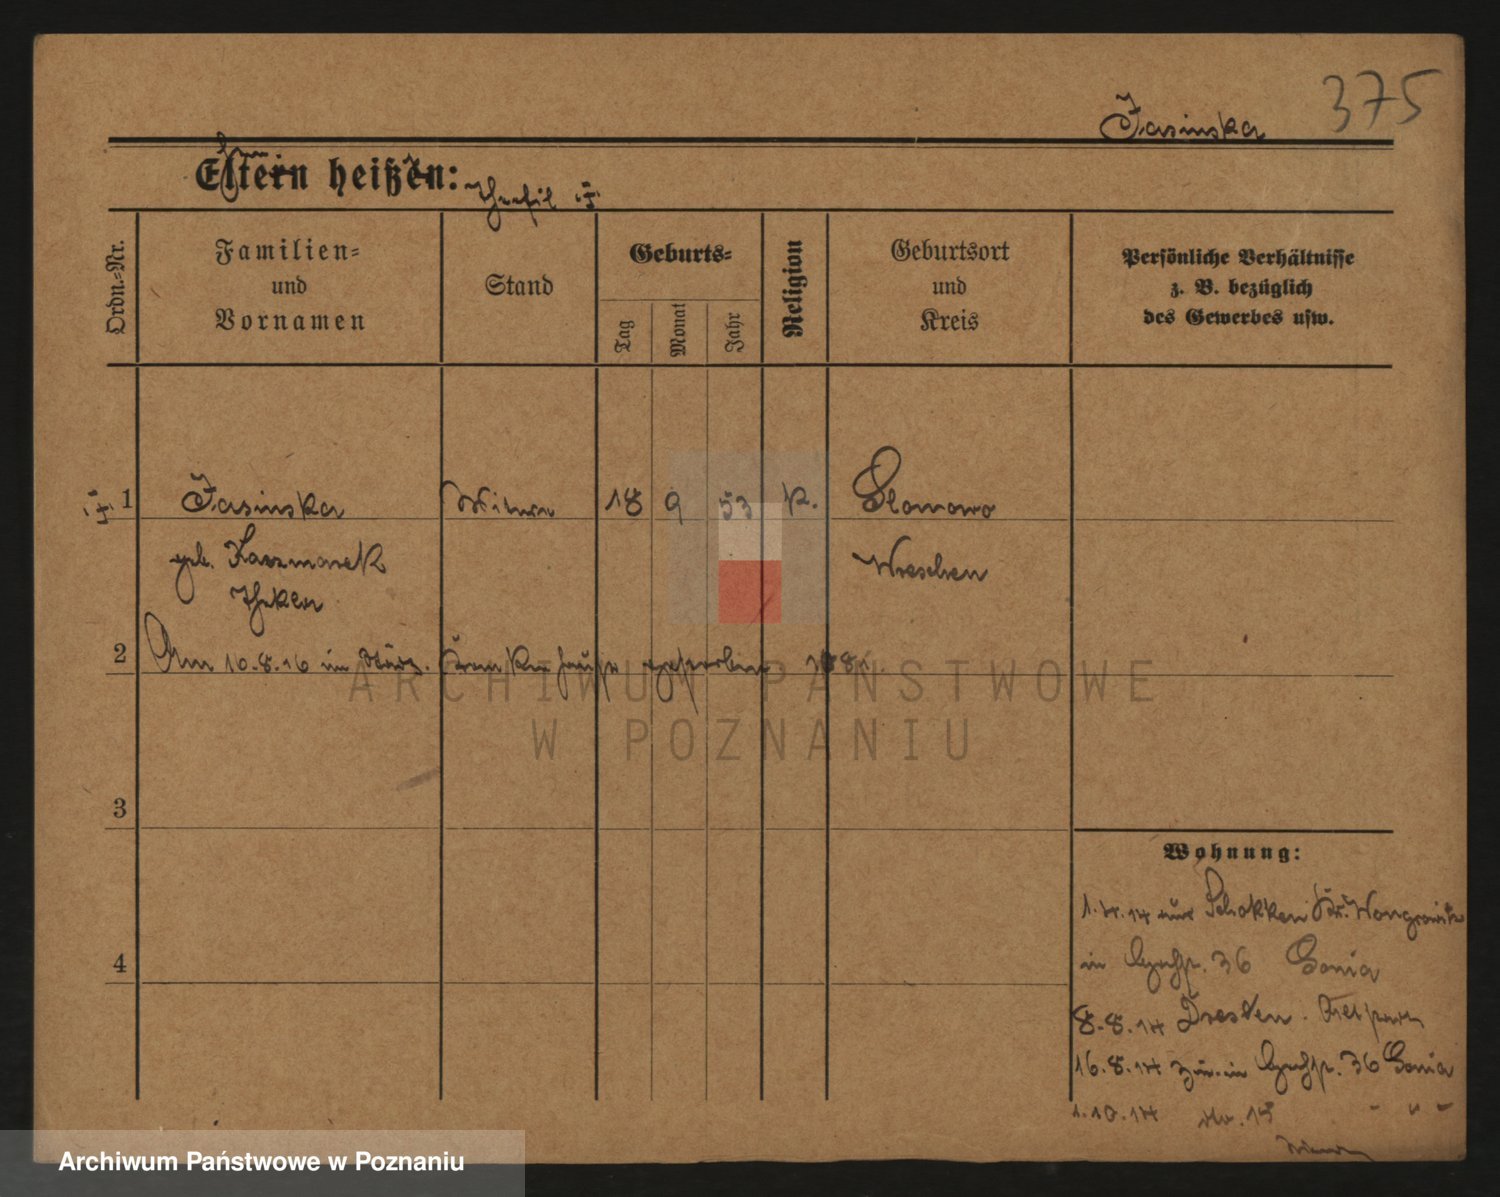 375
Jasinska
Eltern heißen:
Theofil
Ordn.-Nr.
Familien-
und
Vornamen
Stand
Geburts-
Tag
Monat
Jahr
Religion
Geburtsort
und
Kreis
Persönliche Verhältnisse
z. B. bezüglich
des Gewerbes usw.
1 Jasinska Witwe 18 9 53 K. Slomowo
geb. Kaczmarek Wreschen
Thekla
2 Am 10.8.16 im städt. Krankenhause gestorben.
3
4
Wohnung:
1.4.14 aus Schokken Kr. Wongrowitz
in 36
8.8.14 Dresden.
16.8.14 zur. in 36
1.10.14 15 " " "
ARCHIWUM PAŃSTWOWE
W POZNANIU
Archiwum Państwowe w Poznaniu